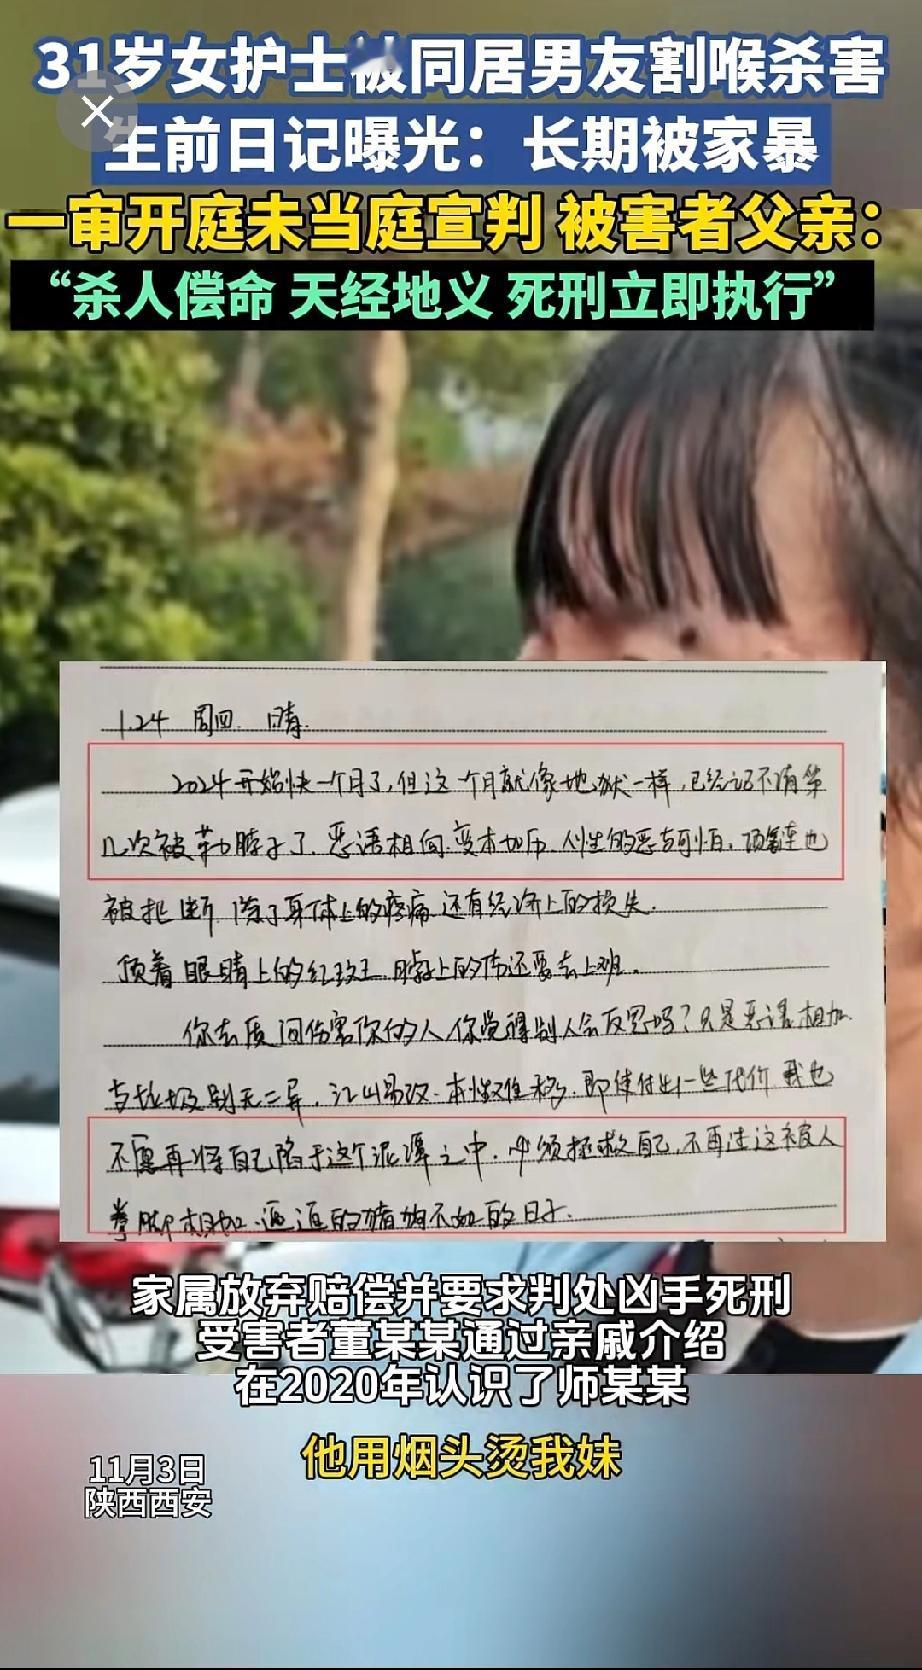 31岁女护士被同居男友割喉杀害
生前日记曝光：长期被家暴
一审开庭未当庭宣判 被害者父亲：
“杀人偿命 天经地义 死刑立即执行”
1.24 周四 晴.
2024开始快一个月了,但这个月就像地狱一样,已经记不清第
几次被勒脖子了.恶语相向.变本加厉.人性的恶与可怕.项链也
被扯断,除了身体上的疼痛还有经济上的损失.
顶着眼睛上的红斑 脖子上的伤还要去上班.
你去质问伤害你的人你觉得别人会反思吗?只是恶语相加.
与垃圾别无二异,江山易改.本性难移.即使付出一些代价 我也
不愿再将自己陷于这个泥潭之中.必须拯救自己,不再过这被人
拳脚相加. 的猪狗不如的日子.
家属放弃赔偿并要求判处凶手死刑
受害者董某某通过亲戚介绍
在2020年认识了师某某
他用烟头烫我妹
11月3日
陕西西安